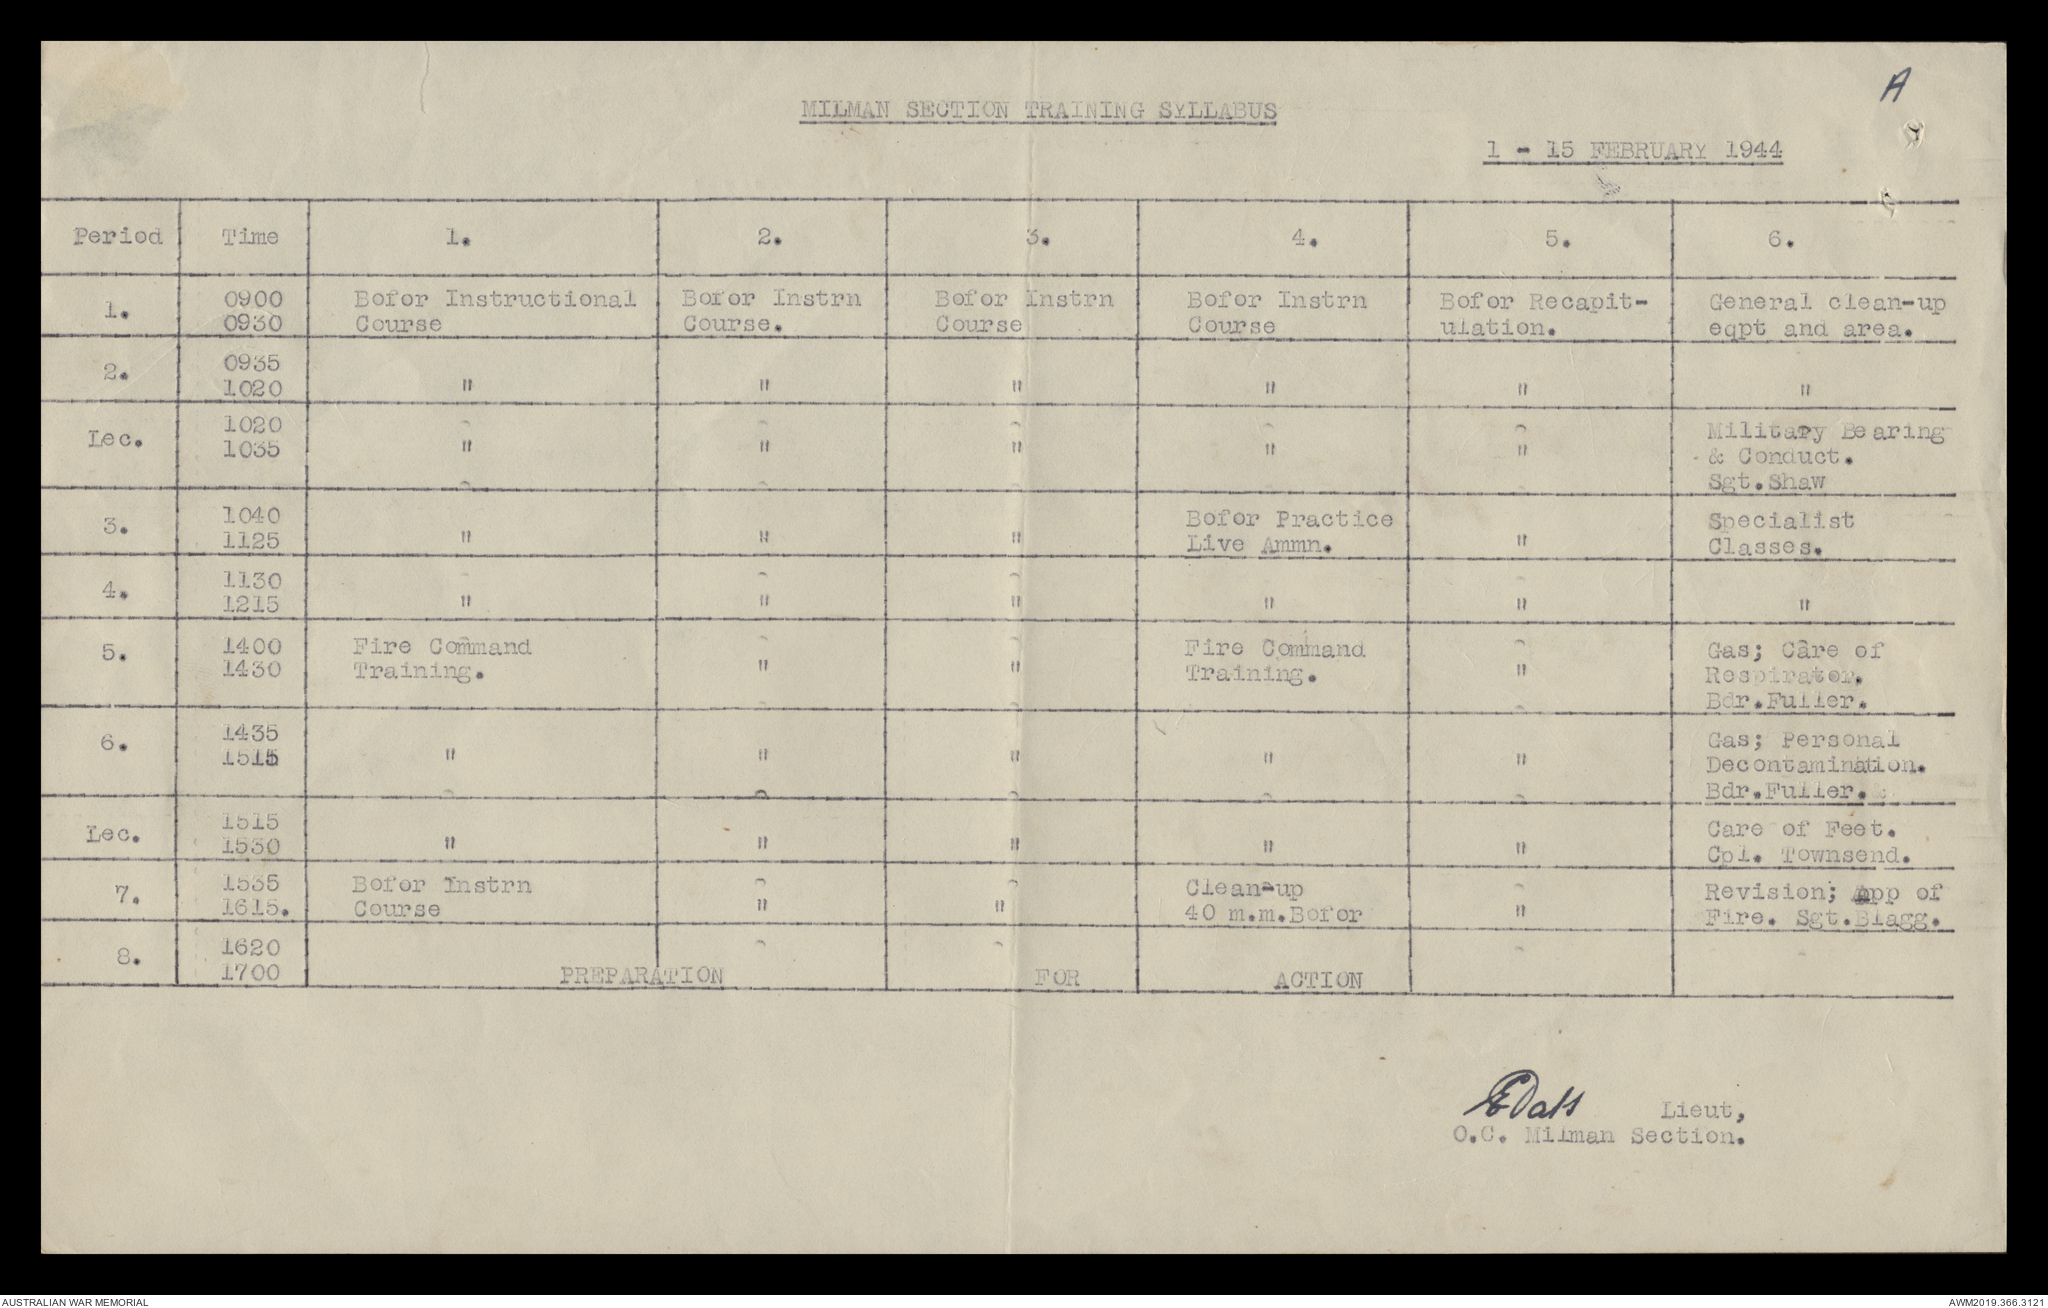 A
MILMAN SECTION TRAINING SYLLABUS
1 - 15 FEBRUARY 1944
Period Time 1. 2. 3. 4. 5. 6.
1. 0900 Bofor Instructional Bofor Instrn Bofor Instrn Bofor Instrn Bofor Recapit- General clean-up
0930 Course Course. Course Course ulation. eqpt and area.
2. 0935
1020 " " " " " "
Lec. 1020 Military Bearing
1035 " " " " " & Conduct.
Sgt.Shaw
3. 1040 Bofor Practice Specialist
1125 " " " Live Ammn. " Classes.
4. 1130
1215 " " " " " "
5. 1400 Fire Command Fire Command Gas; Care of
1430 Training. " Training. " Respirator.
Bdr.Fuller.
6. 1435 Gas; Personal
1515 " " " " " Decontamination.
Bdr.Fuller.
Lec. 1515 Care of Feet.
1530 " " " " " Cpl. Townsend.
7. 1535 Bofor Instrn Clean-up Revision; App of
1615. Course " " 40 m.m.Bofor " Fire. Sgt.Blagg.
8. 1620
1700 PREPARATION FOR ACTION
Lieut,
O.C. Milman Section.
AUSTRALIAN WAR MEMORIAL AWM2019.366.3121